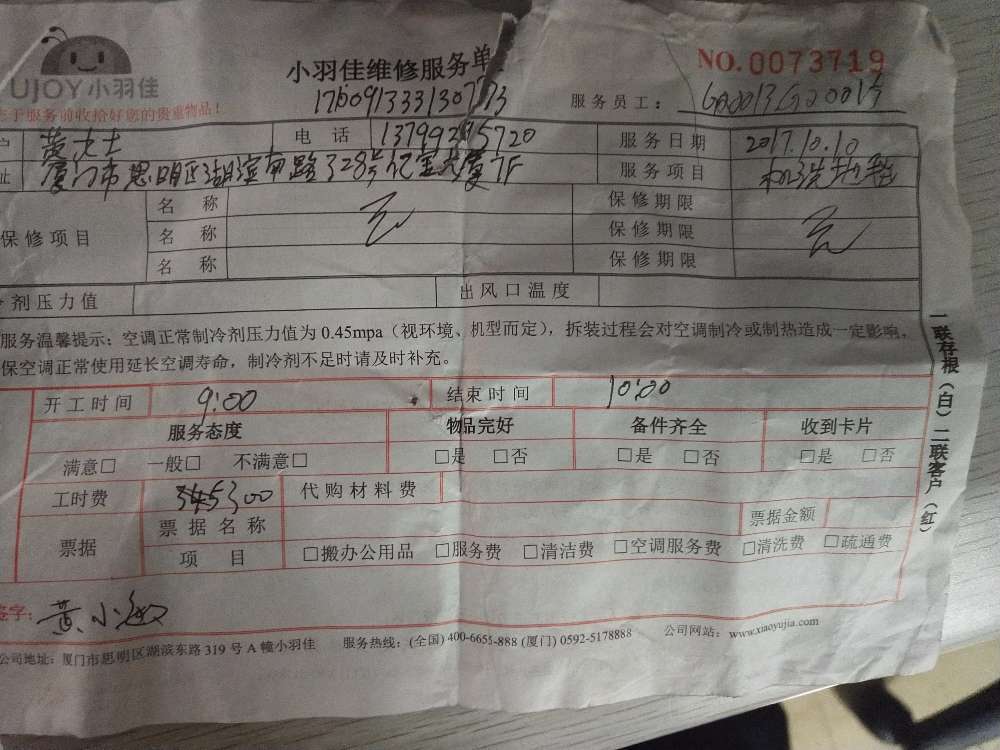 UJOY小羽佳
于服务前收拾好您的贵重物品！
小羽佳维修服务单
NO.0073719
服务员工：
电 话
服务日期 2017.10.10
址 厦门市思明区湖滨南路328号亿宝大厦7F
服务项目 机洗地毯
保修项目
名 称 无 保修期限 无
名 称 保修期限
名 称 保修期限
剂压力值 出风口温度
服务温馨提示：空调正常制冷剂压力值为 0.45mpa（视环境、机型而定），拆装过程会对空调制冷或制热造成一定影响，
保空调正常使用延长空调寿命，制冷剂不足时请及时补充。
开工时间 9:00 结束时间 10:00
服务态度 物品完好 备件齐全 收到卡片
满意□ 一般□ 不满意□ □是 □否 □是 □否 □是 □否
工时费 300 代购材料费
票据 票据名称 票据金额
项 目 □搬办公用品 □服务费 □清洁费 □空调服务费 □清洗费 □疏通费
签字：黄小敏
公司地址：厦门市思明区湖滨东路 319 号 A 幢小羽佳 服务热线：(全国) 400-6655-888 (厦门) 0592-5178888 公司网站：www.xiaoyujia.com
一联存根（白）二联客户（红）